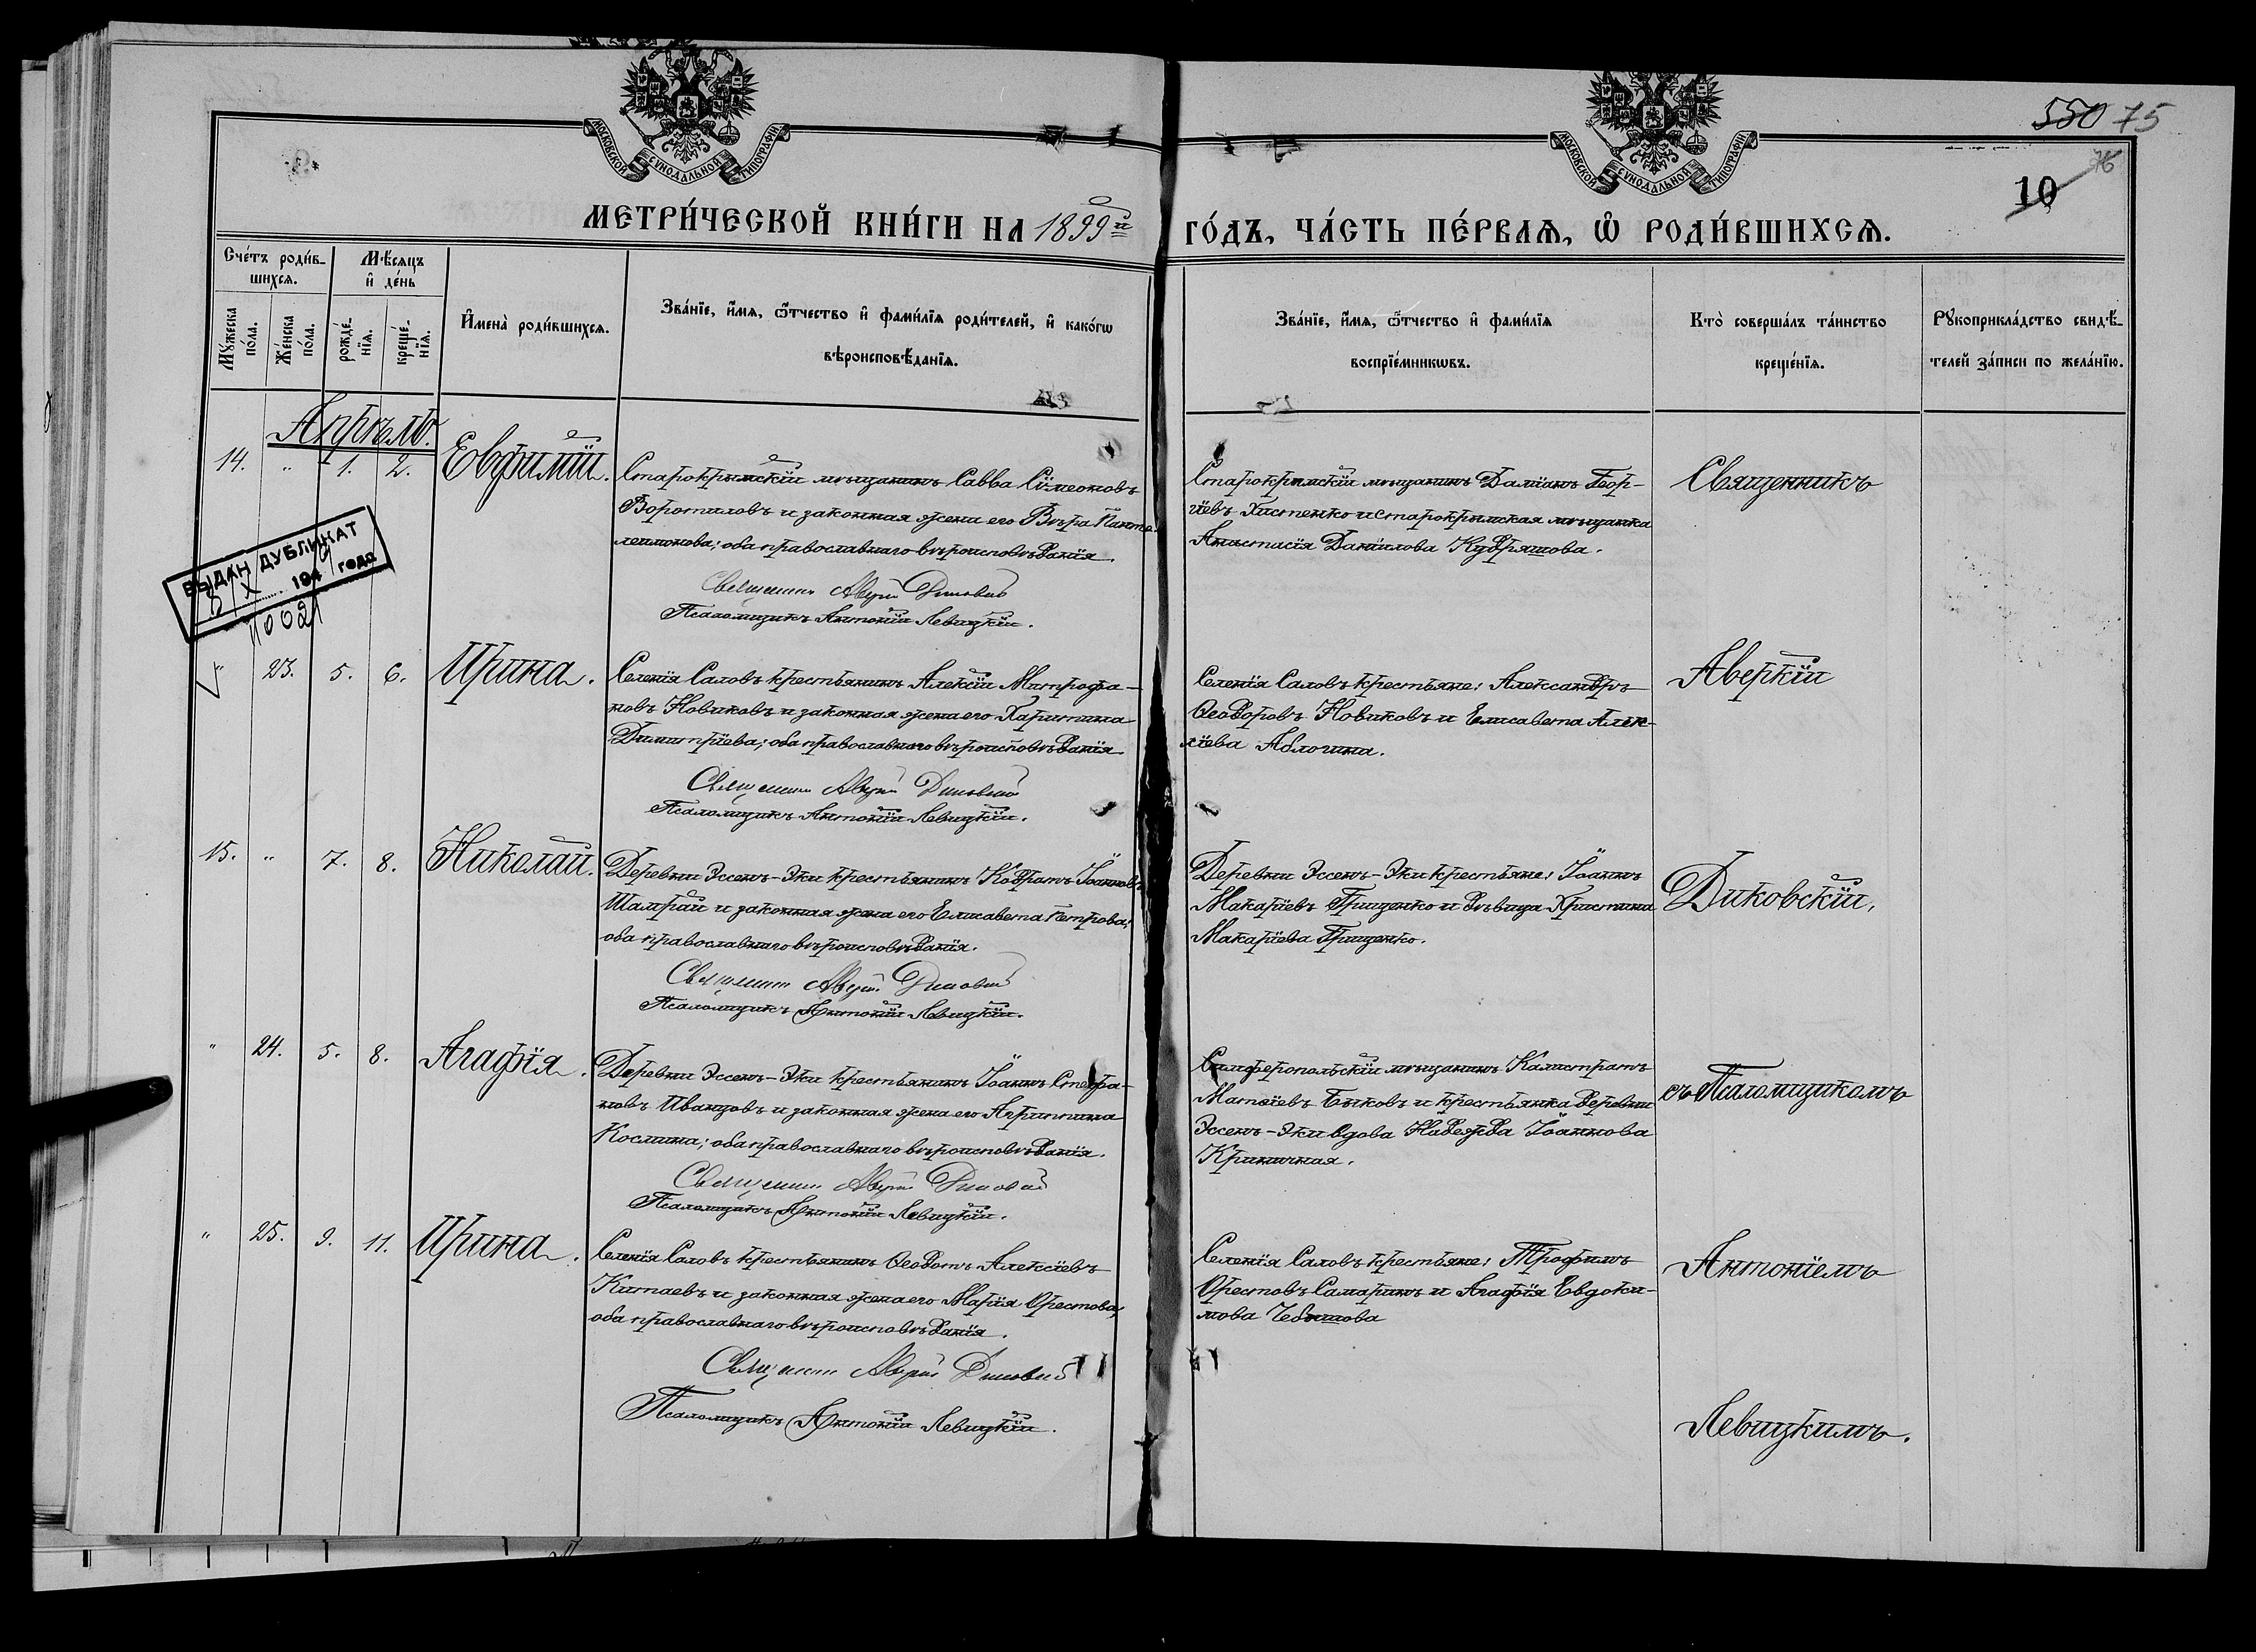 МОСКОВСКОЙ СѴНОДАЛЬНОЙ ТИПОГРАФІИ
МОСКОВСКОЙ СѴНОДАЛЬНОЙ ТИПОГРАФІИ
550 75
76
10
МЕТРИ́ЧЕСКОЙ КНИ́ГИ НА 1899й
ГО́ДЪ, ЧА́СТЬ ПЕ́РВАѦ, Ѡ҆ РОДИ́ВШИХСѦ.
Сче́тъ роди́в-
шихсѧ.
Мѣ́сѧцъ
и҆ де́нь
Мꙋ́жеска
по́ла.
Же́нска
по́ла.
рожде́-
нїѧ.
креще́-
нїѧ.
И҆мена̀ роди́вшихсѧ.
Зва́нїе, и҆́мѧ, ѻ҆́тчество и҆ фами́лїѧ роди́телей, и҆ како́гѡ
вѣроисповѣ́данїѧ.
Зва́нїе, и҆́мѧ, ѻ҆́тчество и҆ фами́лїѧ
воспрїе́мникѡвъ.
Кто̀ соверша́лъ та́инство
креще́нїѧ.
Рꙋкоприкла́дство свидѣ́-
телей за́писи по жела́нїю.
Апрѣль.
14. " 1. 2. Евфимій.
Старокрымскій мѣщанинъ Савва Сѵмеоновъ
Воротиловъ и законная жена его Вѣра Панте-
леимонова; оба православнаго вѣроисповѣданія.
Священникъ Аверкій Диковскій
Псаломщикъ Антоній Левицкій.
Старокрымскій мѣщанинъ Даміанъ Геор-
гіевъ Хистенко и старокрымская мѣщанка
Анастасія Даніилова Кудряшова.
Священникъ
ВЫДАН ДУБЛИКАТ
194 года
" 23. 5. 6. Ирина.
Селенія Саловъ крестьянинъ Алексій Митрофа-
новъ Новиковъ и законная жена его Харитина
Димитріева; оба православнаго вѣроисповѣданія.
Священникъ Аверкій Диковскій
Псаломщикъ Антоній Левицкій.
Селенія Саловъ крестьяне: Александръ
Ѳеодоровъ Новиковъ и Елисавета Алек-
сіева Аблогина.
Аверкій
15. " 7. 8. Николай.
Деревни Эссенъ-Эки крестьянинъ Кодратъ Іоанновъ
Шамрай и законная жена его Елисавета Петрова;
оба православнаго вѣроисповѣданія.
Священникъ Аверкій Диковскій
Псаломщикъ Антоній Левицкій.
Деревни Эссенъ-Эки крестьяне: Іоаннъ
Макаріевъ Грищенко и дѣвица Христина
Макаріева Грищенко.
Диковскій,
" 24. 5. 8. Агафія.
Деревни Эссенъ-Эки крестьянинъ Іоаннъ Стефа-
новъ Иванцовъ и законная жена его Агриппина
Космина; оба православнаго вѣроисповѣданія.
Священникъ Аверкій Диковскій
Псаломщикъ Антоній Левицкій.
Симферопольскій мѣщанинъ Калистратъ
Матѳіевъ Быковъ и крестьянка деревни
Эссенъ-Эки вдова Надежда Іоаннова
Криничная.
съ Псаломщикомъ
" 25. 9. 11. Ирина.
Селенія Саловъ крестьянинъ Ѳеодотъ Алексіевъ
Китаевъ и законная жена его Марія Орестова;
оба православнаго вѣроисповѣданія.
Священникъ Аверкій Диковскій
Псаломщикъ Антоній Левицкій.
Селенія Саловъ крестьяне: Трофимъ
Орестовъ Самаринъ и Агафія Евдоки-
мова Чебышова
Антоніемъ
Левицкимъ.